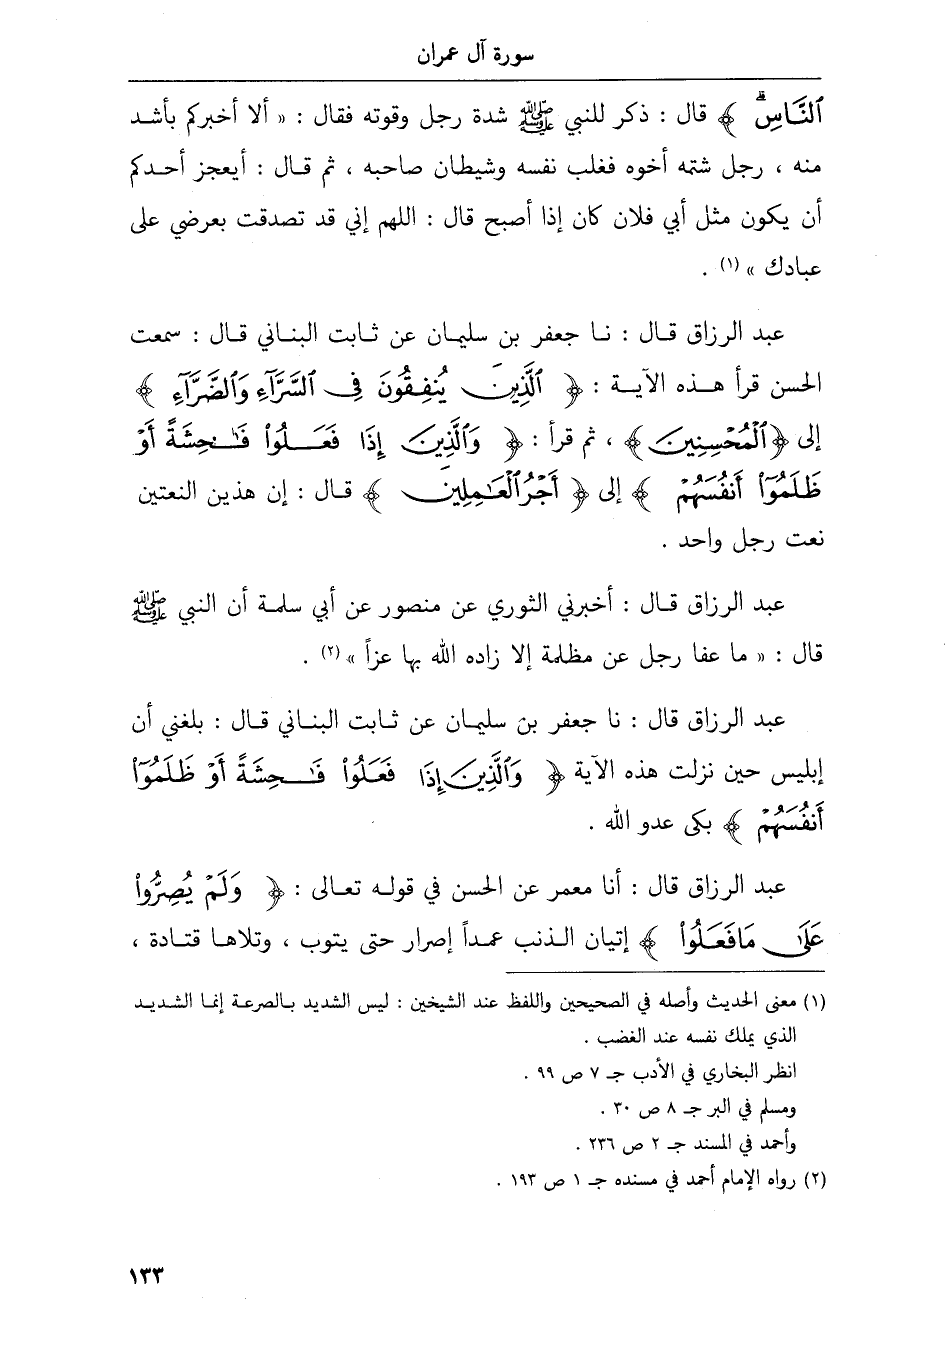 سورة آل عمران
ٱلنَّاسِۗ ﴾ قال : ذكر للنبي ﷺ شدة رجل وقوته فقال : « ألا أخبركم بأشد
منه ، رجل شتمه أخوه فغلب نفسه وشيطان صاحبه ، ثم قال : أيعجز أحدكم
أن يكون مثل أبي فلان كان إذا أصبح قال : اللهم إني قد تصدقت بعرضي على
عبادك » (١) .
عبد الرزاق قال : نا جعفر بن سليمان عن ثابت البناني قال : سمعت
الحسن قرأ هذه الآية : ﴿ ٱلَّذِينَ يُنفِقُونَ فِى ٱلسَّرَّآءِ وَٱلضَّرَّآءِ ﴾
إلى ﴿ٱلْمُحْسِنِينَ﴾ ، ثم قرأ : ﴿ وَٱلَّذِينَ إِذَا فَعَلُوا۟ فَـٰحِشَةً أَوْ
ظَلَمُوٓا۟ أَنفُسَهُمْ ﴾ إلى ﴿ أَجْرُ ٱلْعَـٰمِلِينَ ﴾ قال : إن هذين النعتين
نعت رجل واحد .
عبد الرزاق قال : أخبرني الثوري عن منصور عن أبي سلمة أن النبي ﷺ
قال : « ما عفا رجل عن مظلمة إلا زاده الله بها عزاً » (٢) .
عبد الرزاق قال : نا جعفر بن سليمان عن ثابت البناني قال : بلغني أن
إبليس حين نزلت هذه الآية ﴿ وَٱلَّذِينَ إِذَا فَعَلُوا۟ فَـٰحِشَةً أَوْ ظَلَمُوٓا۟
أَنفُسَهُمْ ﴾ بكى عدو الله .
عبد الرزاق قال : أنا معمر عن الحسن في قوله تعالى : ﴿ وَلَمْ يُصِرُّوا۟
عَلَىٰ مَا فَعَلُوا۟ ﴾ إتيان الذنب عمداً إصرار حتى يتوب ، وتلاها قتادة ،
(١) معنى الحديث وأصله في الصحيحين واللفظ عند الشيخين : ليس الشديد بالصرعة إنما الشديد
الذي يملك نفسه عند الغضب .
انظر البخاري في الأدب جـ ٧ ص ٩٩ .
ومسلم في البر جـ ٨ ص ٣٠ .
وأحمد في المسند جـ ٢ ص ٢٣٦ .
(٢) رواه الإمام أحمد في مسنده جـ ١ ص ١٩٣ .
١٣٣